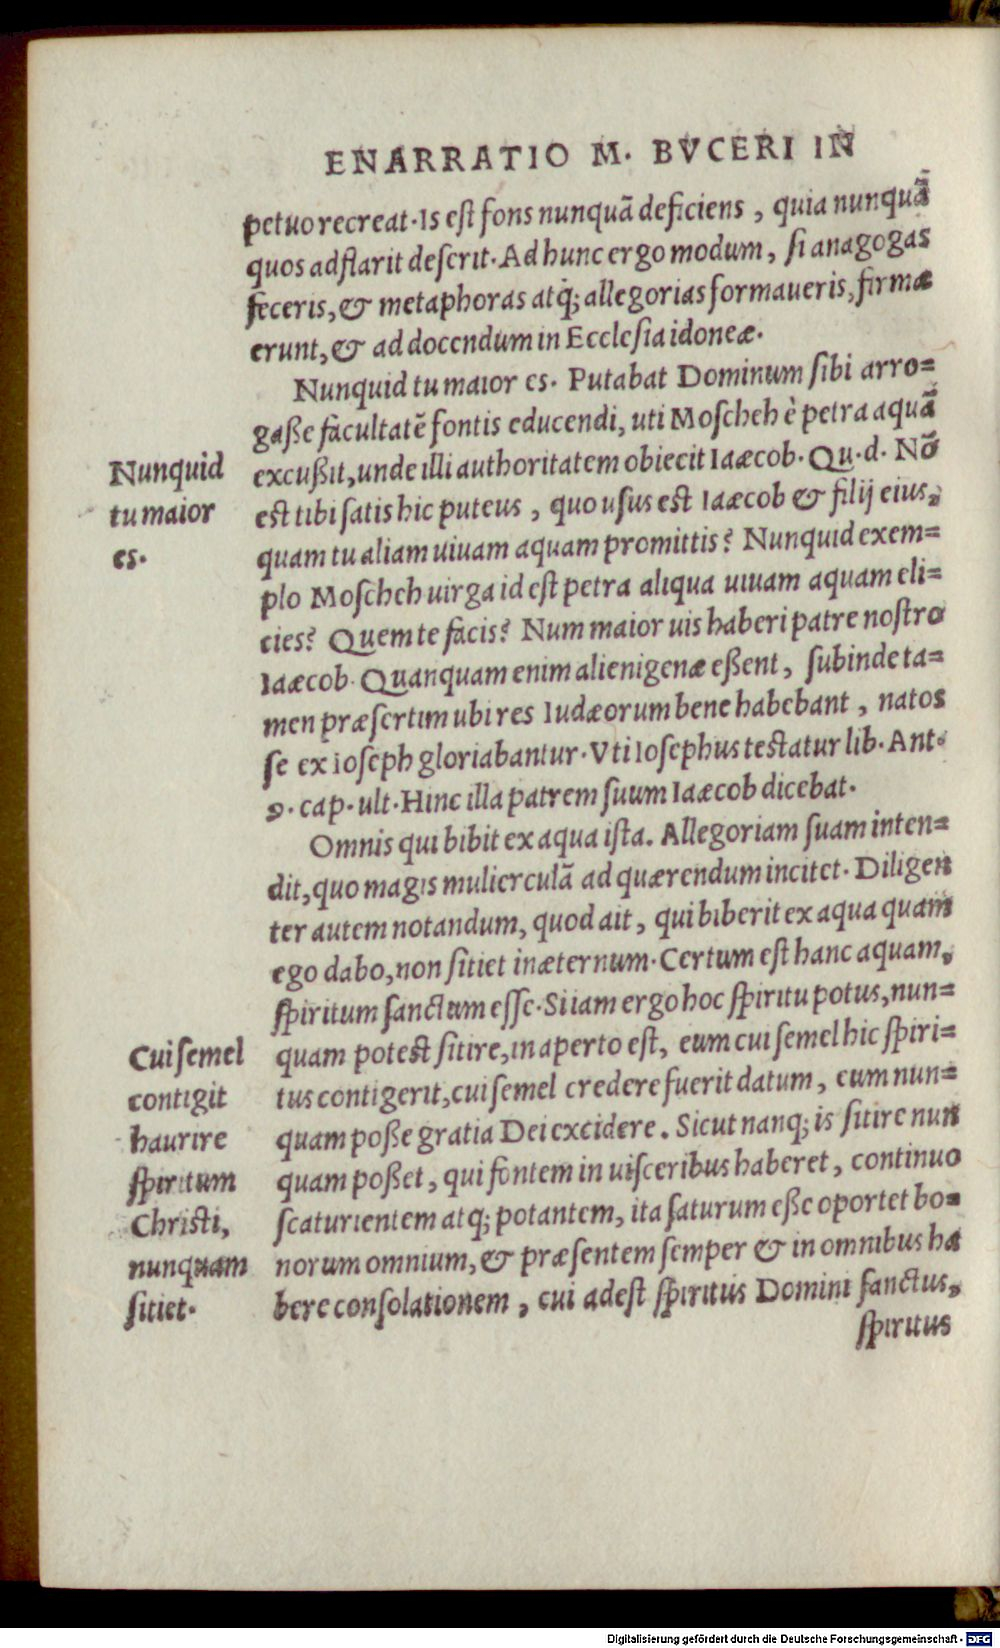 ENARRATIO M. BVCERI IN
petuo recreat. Is eſt fons nunquã deficiens, quia nunquã
quos adflarit deſerit. Ad hunc ergo modum, ſi anagogas
feceris, & metaphoras atq́; allegorias formaueris, firmæ
erunt, & ad docendum in Eccleſia idoneæ.
Nunquid tu maior es. Putabat Dominum ſibi arro=
gaße facultatẽ fontis educendi, uti Moſcheh è petra aquã
Nunquid
tu maior
es.
excußit, unde illi authoritatem obiecit Iaæcob. Qu. d. Nõ
est tibi ſatis hic puteus, quo uſus est Iaæcob & filij eius,
quam tu aliam uiuam aquam promittis? Nunquid exem=
plo Moſcheh uirga id eſt petra aliqua uiuam aquam eli=
cies? Quem te facis? Num maior uis haberi patre noſtro
Iaæcob. Quanquam enim alienigenæ eßent, ſubinde ta=
men præſertim ubi res Iudæorum bene habebant, natos
ſe ex ioſeph gloriabantur. Vti Ioſephus testatur lib. Ant.
9. cap. ult. Hinc illa patrem ſuum Iaæcob dicebat.
Omnis qui bibit ex aqua iſta. Allegoriam ſuam inten=
dit, quo magis mulierculã ad quærendum incitet. Diligen
ter autem notandum, quod ait, qui biberit ex aqua quam
ego dabo, non ſitiet in æternum. Certum eſt hanc aquam,
ſpiritum ſanctum eſſe. Si iam ergo hoc ſpiritu potus, nun=
Cui ſemel
contigit
haurire
ſpiritum
Christi,
nunquam
ſitiet.
quam potest ſitire, in aperto eſt, eum cui ſemel hic ſpiri=
tus contigerit, cui ſemel credere fuerit datum, eum nun=
quam poße gratia Dei excidere. Sicut nanq; is ſitire nun
quam poßet, qui fontem in uiſceribus haberet, continuo
ſcaturientem atq; potantem, ita ſaturum eße oportet bo=
norum omnium, & præſentem ſemper & in omnibus ha
bere conſolationem, cui adeſt ſpiritus Domini ſanctus,
ſpiritus
Digitalisierung gefördert durch die Deutsche Forschungsgemeinschaft - DFG